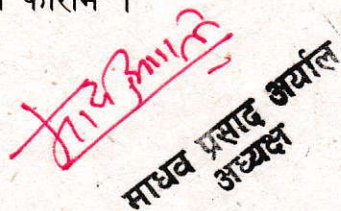 फाराम ।
माधव प्रसाद अर्याल
अध्यक्ष